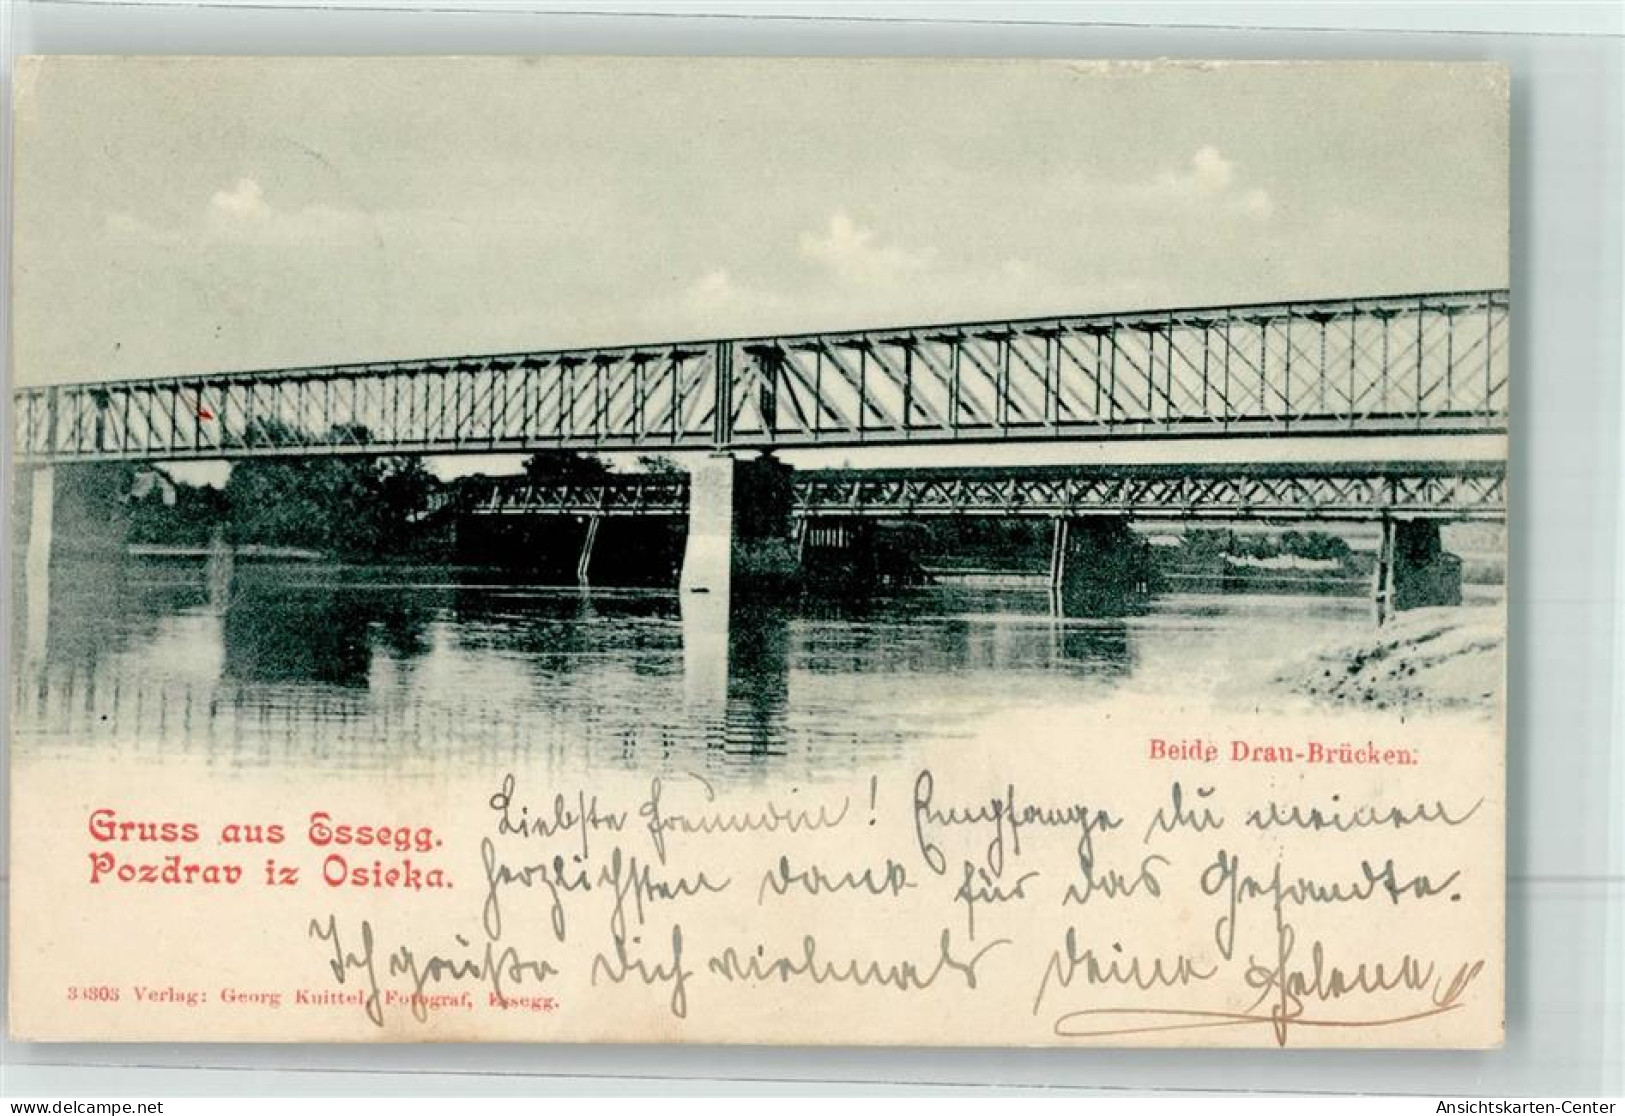 Beide Drau-Brücken.
Gruss aus Essegg.
Pozdrav iz Osieka.
Liebste Freundin! Empfange du meinen
herzlichsten dank für das Gesandte.
Ich grüße dich vielmals deine Helene
33303 Verlag: Georg Knittel, Fotograf, Essegg.
delcampe.net
Ansichtskarten-Center